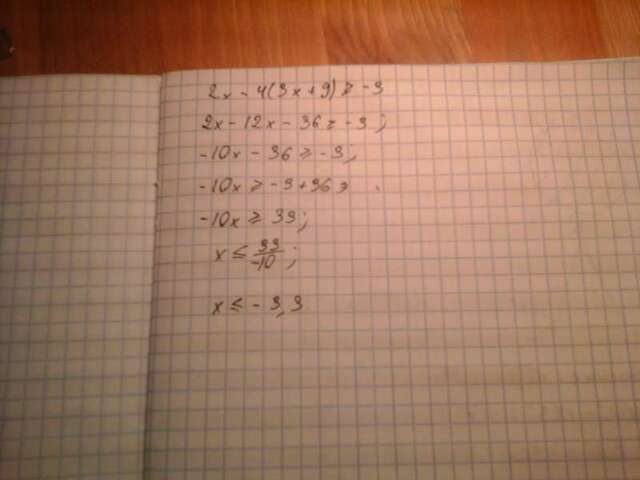 2x - 4(3x+9) ≥ -3
2x - 12x - 36 ≥ -3;
-10x - 36 ≥ -3;
-10x ≥ -3 + 36;
-10x ≥ 33;
x ≤ 33/-10;
x ≤ -3,3